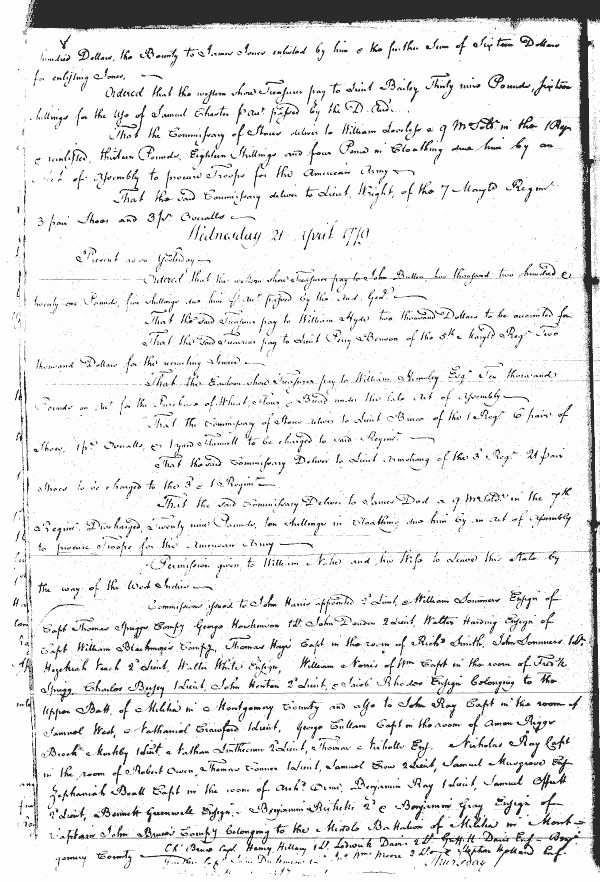 hundred Dollars, the Bounty to James Jones enlisted by him & the further Sum of Sixteen Dollars
for enlisting Jones.
Ordered that the western shore Treasurer pay to Lieut Bailey Thirty nine Pounds, sixteen
shillings for the Use of Samuel Chester p Act passed by the D. Aud.
That the Commissary of Stores deliver to William Lovelass a 9 Mo Sold. in the 1 Regt
& reinlisted, thirteen Pounds, Eighteen Shillings and four Pence in Cloathing due him by an
Act of Assembly to procure Troops for the American Army
That the said Commissary deliver to Lieut. Wright, of the 7 Maryld Regimt
3 pair Shoes and 3 pr Overalls
Wednesday 21 April 1779
Present as on Yesterday
Ordered that the western shore Treasurer pay to John Bullen two thousand two hundred &
twenty one Pounds, five shillings due him p Act passed by the Aud. Genl
That the said Treasurer pay to William Hyde two thousand Dollars to be accounted for
That the said Treasurer pay to Lieut Perry Benson of the 5th Maryld Regt Two
thousand Dollars for the recruiting Service
That the Eastern shore Treasurer pay to William Hemsley Esqr Ten thousand
Pounds on Act for the Purchase of Wheat, Flour & Bread under the late Act of Assembly
That the Commissary of Stores deliver to Lieut Bruce of the 1 Regt 6 pair of
Shoes, 1 pr Overalls, & 1 yard Flannell to be charged to said Regimt
That the said Commissary Deliver to Lieut Armstrong of the 3 Regt 21 pair
Shoes to be charged to the 3 & 1 Regimt
That the said Commissary Deliver to James Dod a 9 Mo Sold. in the 7th
Regimt Discharged, Twenty nine Pounds, ten shillings in Cloathing due him by an Act of Assembly
to procure Troops for the American Army
Permission given to William Nake and his Wife to Leave this State by
the way of the West Indies
Commissions issued to John Harris appointed 2 Lieut, William Sommers Ensign of
Capt Thomas Spriggs Compy George Hoskinson 1 Lt John Dowden 2 Lieut, Walter Harding Ensign of
Capt William Blackmore's Compy, Thomas Hays Capt in the room of Richd Smith, John Sommers 1 Lt.
Hezekiah Veach 2d Lieut, Walter White Ensign, William Norris of Wm Capt in the room of Fredk
Sprigg Charles Bussey 1 Lieut, John Henton 2d Lieut, & Jacob Rhodes Ensign belonging to the
Upper Batt. of Militia in Montgomery County and also to John Ray Capt in the room of
Samuel West, Nathaniel Crawford 1 Lieut, George Cullam Capt in the room of Amon Riggs
Brock Mockby 1 Lieut, Nathan Linthicum 2d Lieut, Thomas Nicholls Ens. Nicholas Ray Capt
in the room of Robert Owen, Thomas Conner 1 Lieut, Samuel Crow 2 Lieut, Samuel Musgrove Ens
Zephaniah Beall Capt in the room of Archd Orme, Benjamin Ray 1 Lieut, Samuel Offutt
2d Lieut, Bennett Greenwell Ensign. Benjamin Ricketts 2d & Benjamin Gray Ensign of
Captain John Bruce's Compy belonging to the Middle Battalion of Militia in Mont-
gomery County Chs Bruce Capt. Henry Hillary 1 Lt. Lodowick Davis 2 Lt
Wm Moore 2 Lt & Stephen Holland Ens.
Thursday